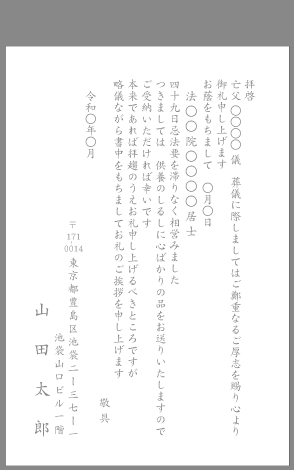 拝啓
亡父 〇〇〇〇 儀　葬儀に際しましてはご鄭重なるご厚志を賜り心より
御礼申し上げます
お蔭をもちまして　〇月〇日
法〇〇院〇〇〇〇居士
四十九日忌法要を滞りなく相営みました
つきましては　供養のしるしに心ばかりの品をお送りいたしますので
ご受納いただければ幸いです
本来であれば拝趨のうえお礼申し上げるべきところですが
略儀ながら書中をもちましてお礼のご挨拶を申し上げます
敬具
令和〇年〇月
〒171-0014 東京都豊島区池袋二ー三七ー一
池袋山口ビル一階
山田太郎